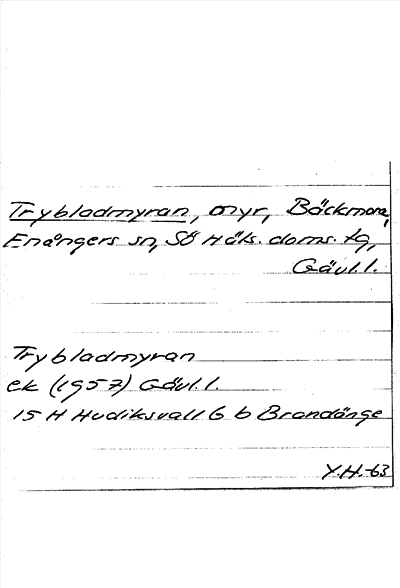 Trybladmyran, myr, Bäckmora,
Enångers sn, Sö Häls. doms. tg,
Gävl.l.
Trybladmyran
ek (1957) Gävl.l.
15 H Hudiksvall 6 b Brandänge
Y.H.-63